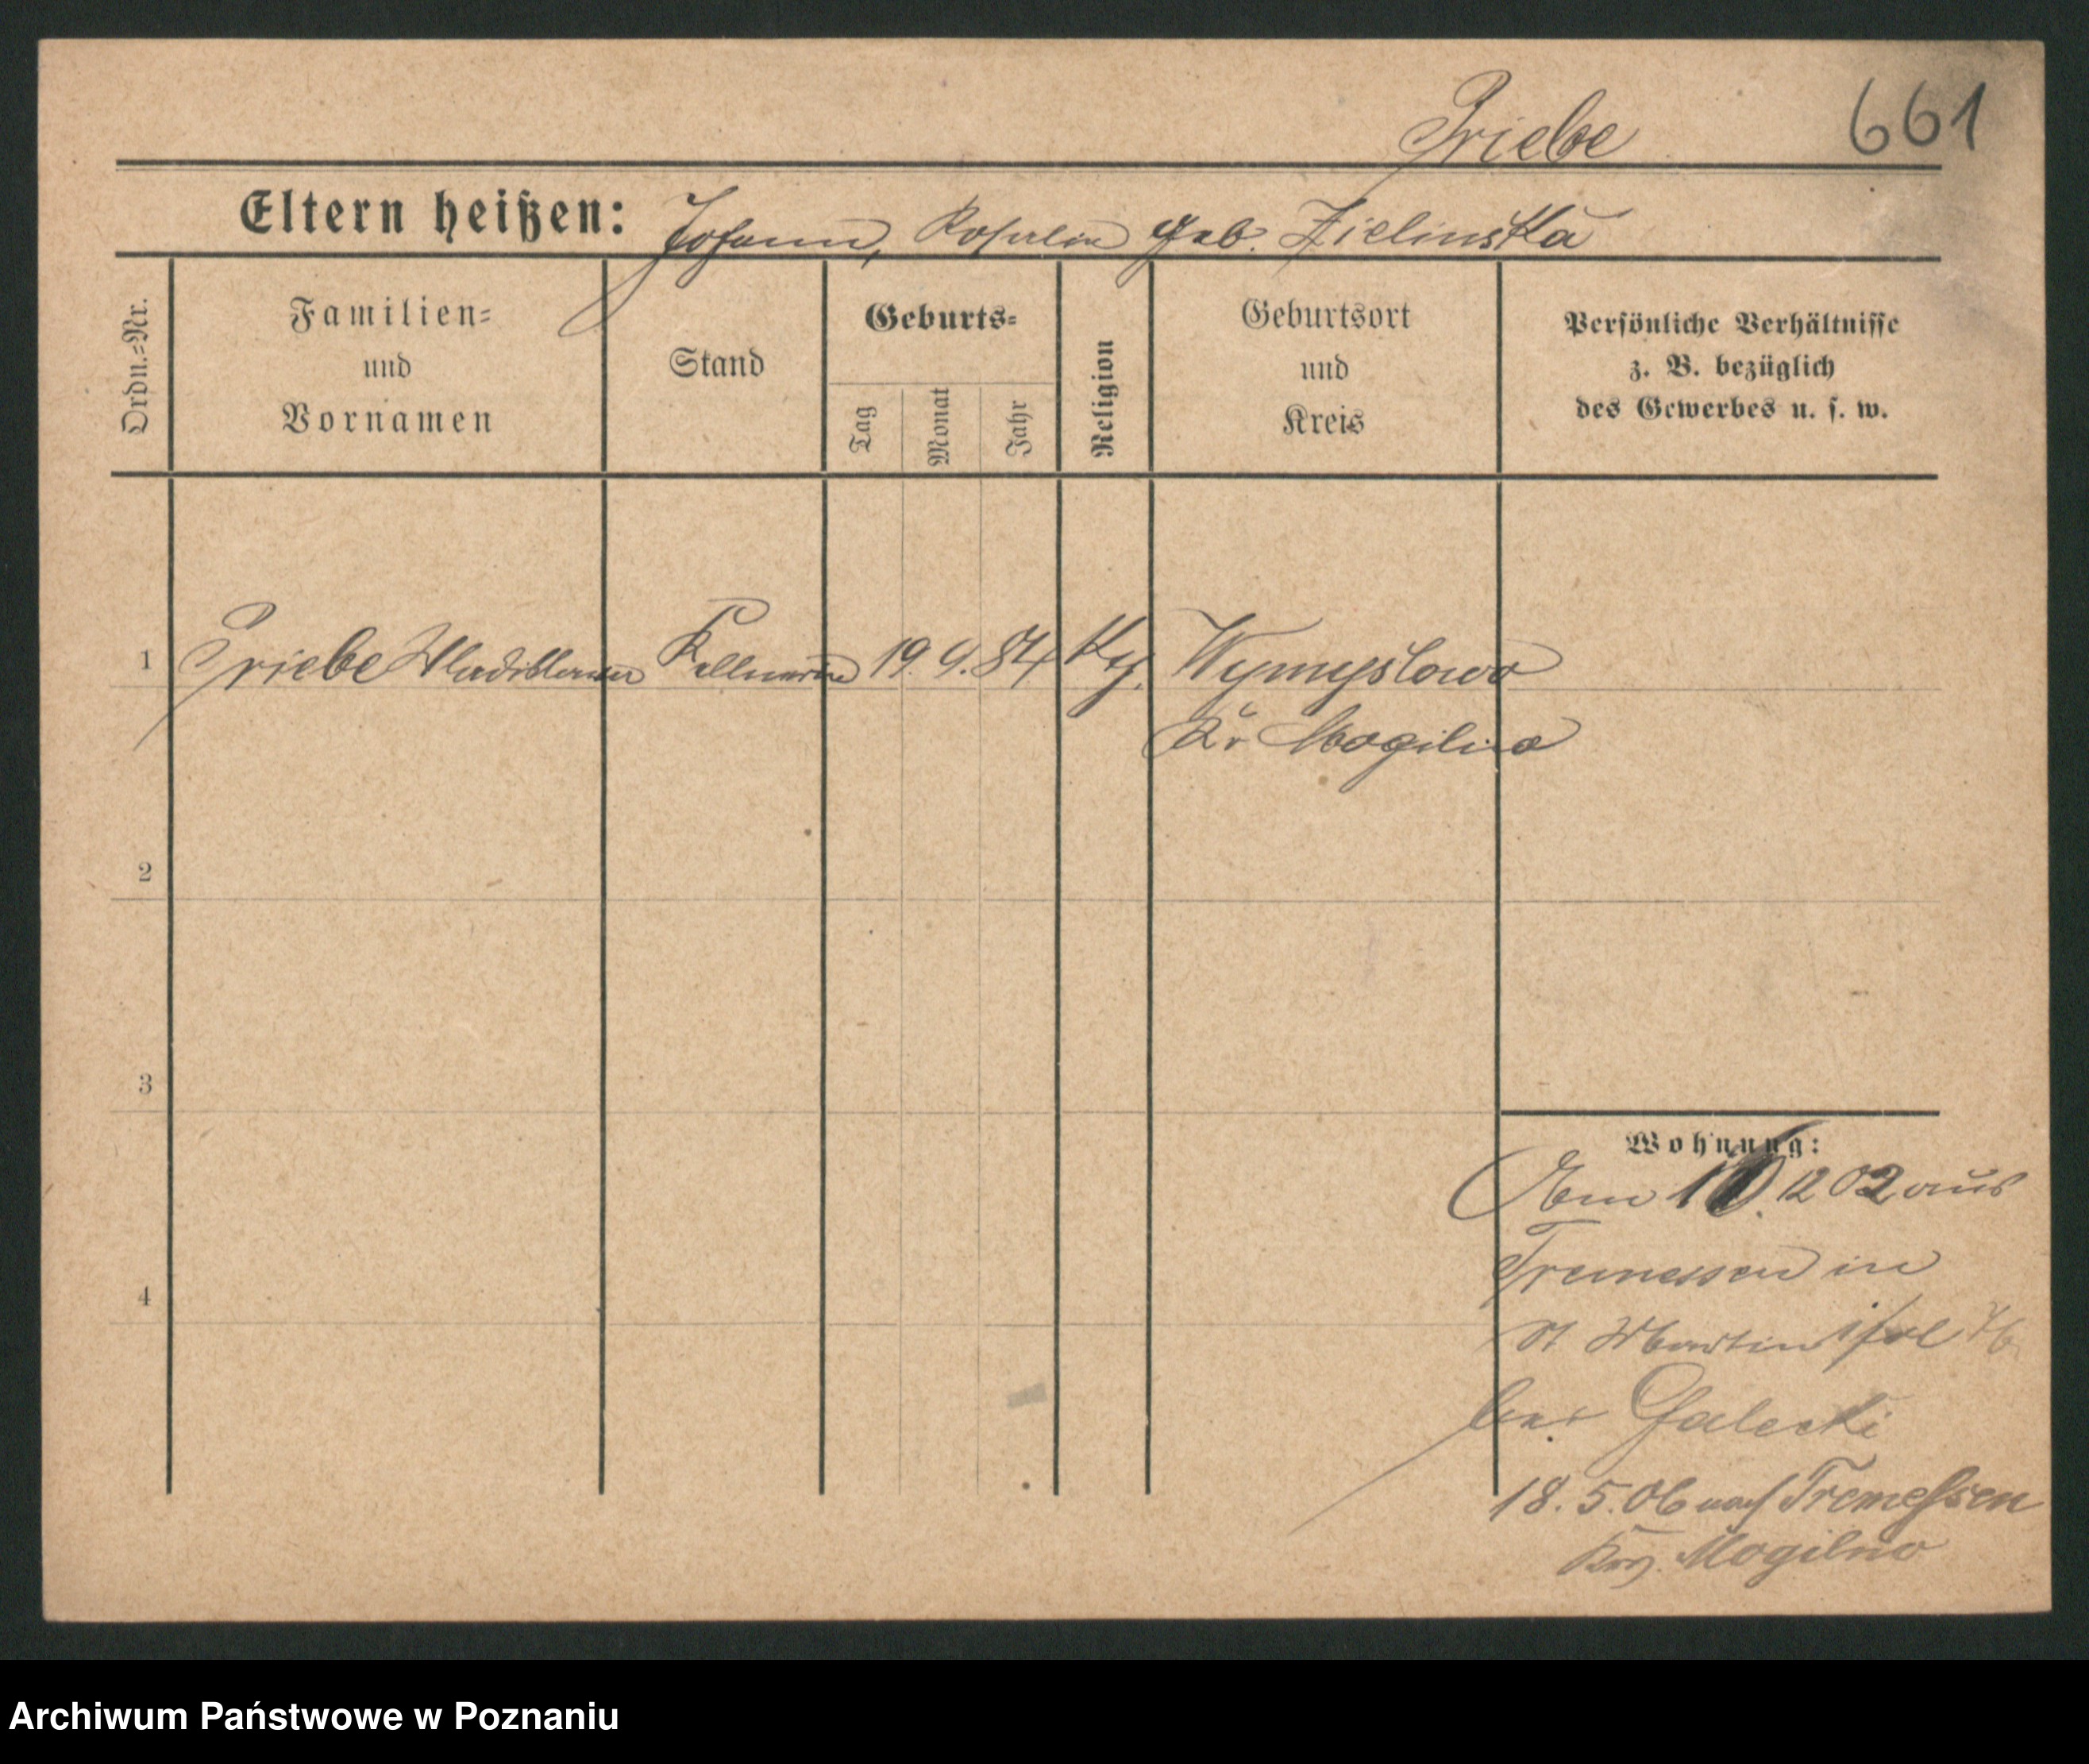 Priebe 661
Eltern heißen: Johann, Rosalie geb. Zielinska
Ordn.=Nr.
Familien=
und
Vornamen
Stand
Geburts=
Tag
Monat
Jahr
Religion
Geburtsort
und
Kreis
Persönliche Verhältnisse
z. B. bezüglich
des Gewerbes u. s. w.
1 Priebe Wladislaus Kellner 19. 9. 84 Wymyslowo
Kr Mogilno
2
3
Wohnung:
Am 12 02 aus
Tremessen in
St Martin
4
bei Galecki
18. 5. 06 nach Tremessen
Mogilno
Archiwum Państwowe w Poznaniu